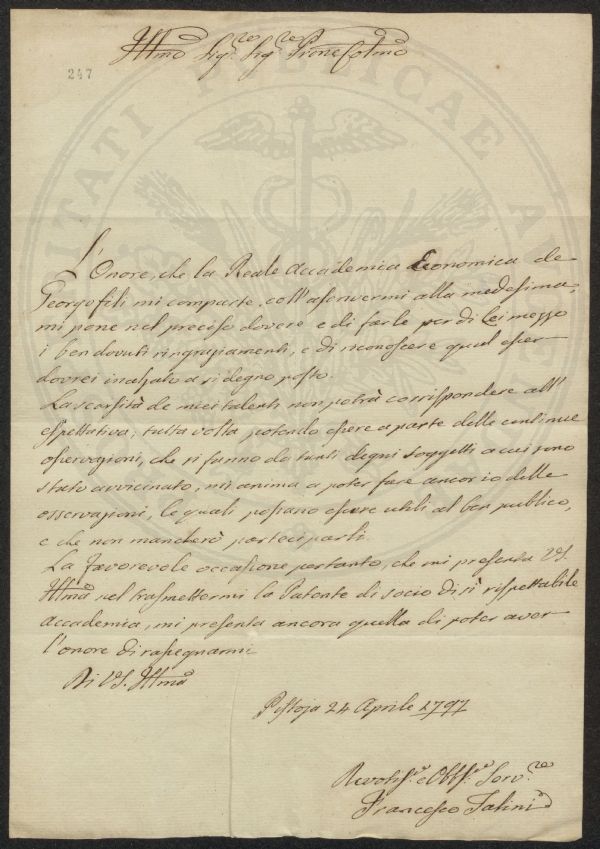 Illmo Sig.re Sig.re Prone Colmo
247
L'Onore, che la Reale Accademia Economica de
Georgofili mi comparte, coll'ascrivermi alla medesima,
mi pone nel preciso dovere e di farle per di Lei mezzo
i ben dovuti ringraziamenti, e di riconoscere qual esser
dovrei inalzato a sì degno posto.
La scarsità de miei talenti non potrà corrispondere all'
espettativa; tutta volta potendo essere a parte delle continue
osservazioni, che si fanno da tanti degni soggetti a cui sono
stato avvicinato, mi anima a poter fare ancor io delle
osservazioni, le quali possano essere utili al ben publico,
e che non mancherò parteciparli.
La favorevole occasione pertanto, che mi presenta VS.
Illma nel trasmettermi la Patente di socio di sì rispettabile
accademia, mi presenta ancora quella di poter aver
l'onore di rassegnarmi
Di VS. Illma
Pistoja 24 Aprile 1797
Devotis.o e Obb.o Serv.re
Francesco
PUBLICAE